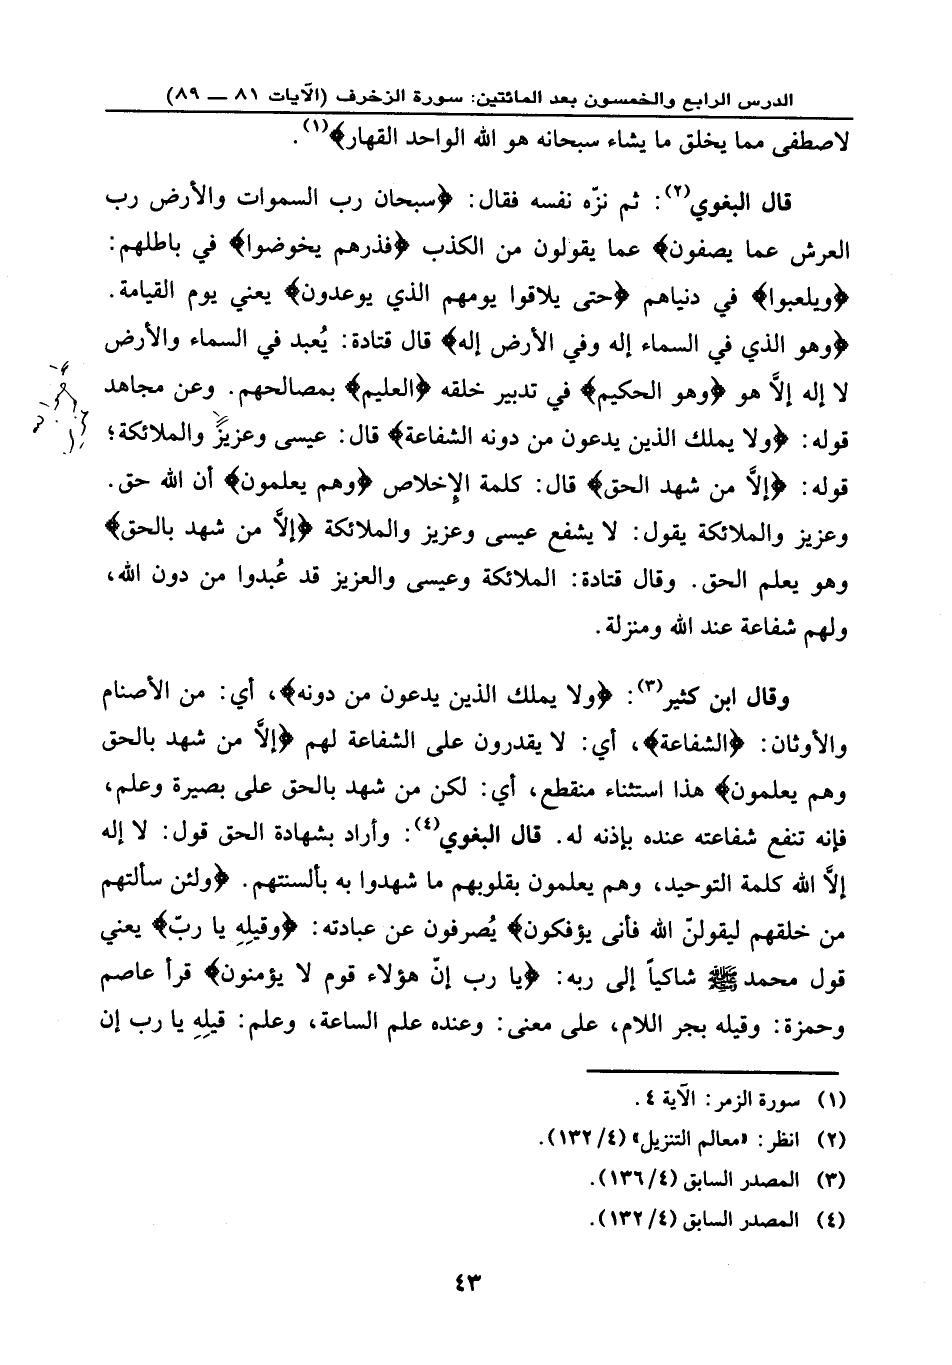 الدرس الرابع والخمسون بعد المائتين: سورة الزخرف (الآيات ٨١ — ٨٩)
لاصطفى مما يخلق ما يشاء سبحانه هو الله الواحد القهار﴾(١).
قال البغوي(٢): ثم نزّه نفسه فقال: ﴿سبحان رب السموات والأرض رب
العرش عما يصفون﴾ عما يقولون من الكذب ﴿فذرهم يخوضوا﴾ في باطلهم:
﴿ويلعبوا﴾ في دنياهم ﴿حتى يلاقوا يومهم الذي يوعدون﴾ يعني يوم القيامة.
﴿وهو الذي في السماء إله وفي الأرض إله﴾ قال قتادة: يُعبد في السماء والأرض
لا إله إلاَّ هو ﴿وهو الحكيم﴾ في تدبير خلقه ﴿العليم﴾ بمصالحهم. وعن مجاهد
قوله: ﴿ولا يملك الذين يدعون من دونه الشفاعة﴾ قال: عيسى وعزيز والملائكة؛
قوله: ﴿إلاَّ من شهد الحق﴾ قال: كلمة الإخلاص ﴿وهم يعلمون﴾ أن الله حق.
وعزيز والملائكة يقول: لا يشفع عيسى وعزيز والملائكة ﴿إلاَّ من شهد بالحق﴾
وهو يعلم الحق. وقال قتادة: الملائكة وعيسى والعزيز قد عُبدوا من دون الله،
ولهم شفاعة عند الله ومنزلة.
وقال ابن كثير(٣): ﴿ولا يملك الذين يدعون من دونه﴾، أي: من الأصنام
والأوثان: ﴿الشفاعة﴾، أي: لا يقدرون على الشفاعة لهم ﴿إلاَّ من شهد بالحق
وهم يعلمون﴾ هذا استثناء منقطع، أي: لكن من شهد بالحق على بصيرة وعلم،
فإنه تنفع شفاعته عنده بإذنه له. قال البغوي(٤): وأراد بشهادة الحق قول: لا إله
إلاَّ الله كلمة التوحيد، وهم يعلمون بقلوبهم ما شهدوا به بألسنتهم. ﴿ولئن سألتهم
من خلقهم ليقولنّ الله فأنى يؤفكون﴾ يُصرفون عن عبادته: ﴿وقيلِهِ يا ربّ﴾ يعني
قول محمد ﷺ شاكياً إلى ربه: ﴿يا رب إنّ هؤلاء قوم لا يؤمنون﴾ قرأ عاصم
وحمزة: وقيله بجر اللام، على معنى: وعنده علم الساعة، وعلم: قيلِهِ يا رب إن
(١) سورة الزمر: الآية ٤.
(٢) انظر: «معالم التنزيل» (٤/ ١٣٢).
(٣) المصدر السابق (٤/ ١٣٦).
(٤) المصدر السابق (٤/ ١٣٢).
٤٣